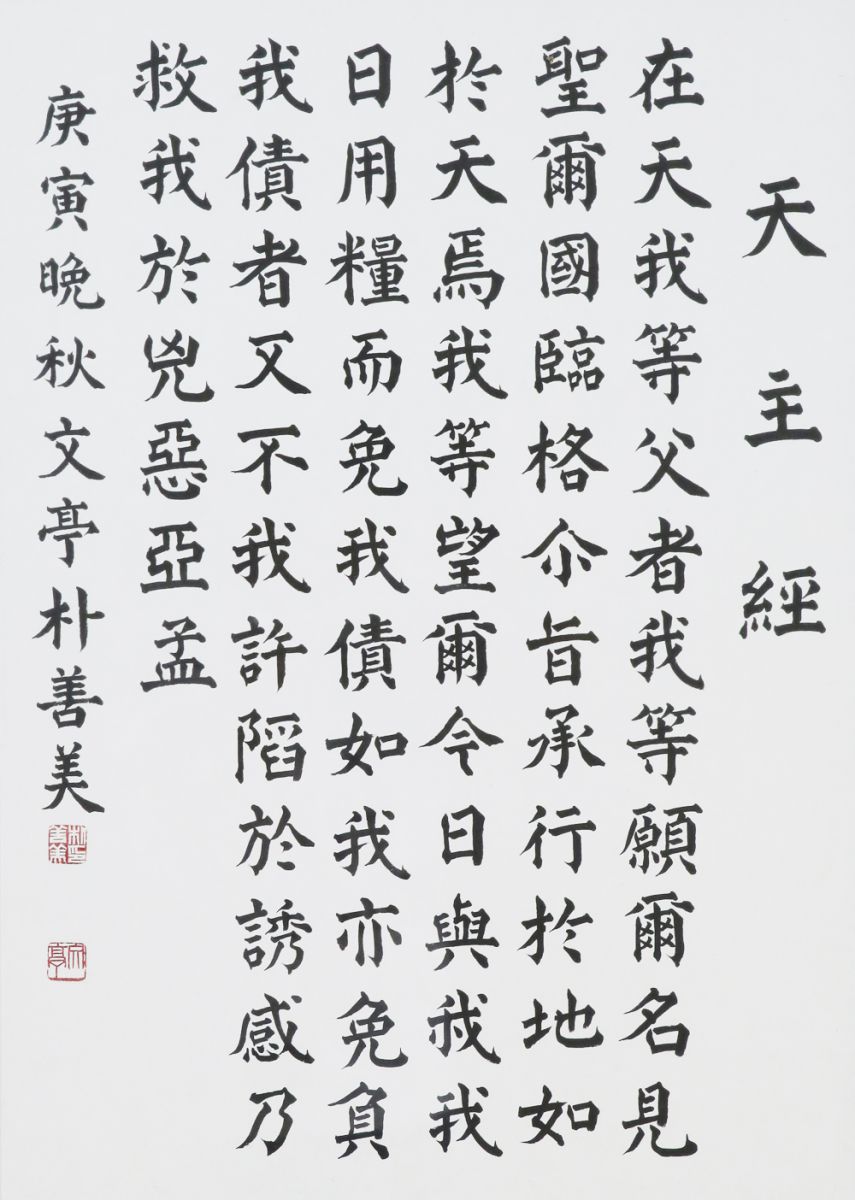 天主經
在天我等父者我等願爾名見
聖爾國臨格尒旨承行於地如
於天焉我等望爾今日與我我
日用糧而免我債如我亦免負
我債者又不我許陷於誘感乃
救我於兇惡亞孟
庚寅晚秋文亭朴善美
朴印善美
文亭